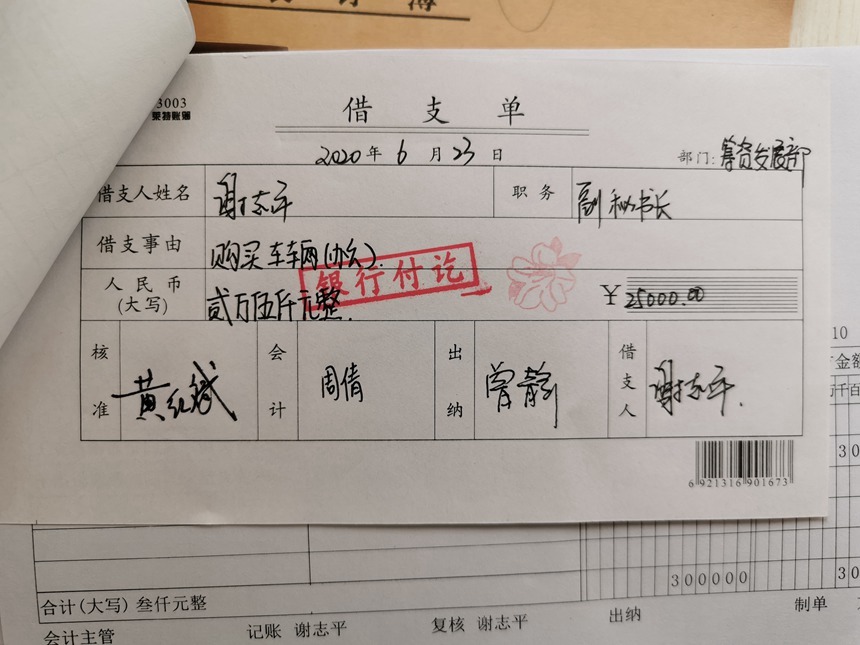 3003
莱特账簿
借支单
2020年6月23日
部门:筹资发展部
借支人姓名 谢志平 职务 副秘书长
借支事由 购买车辆(办公).
银行付讫
人民币(大写) 贰万伍仟元整. ¥25000.00
核准 黄红斌 会计 周倩 出纳 曾静 借支人 谢志平.
6 921316 901673
10
金额
千百
30
300000 30
合计(大写) 叁仟元整
会计主管 记账 谢志平 复核 谢志平 出纳 制单